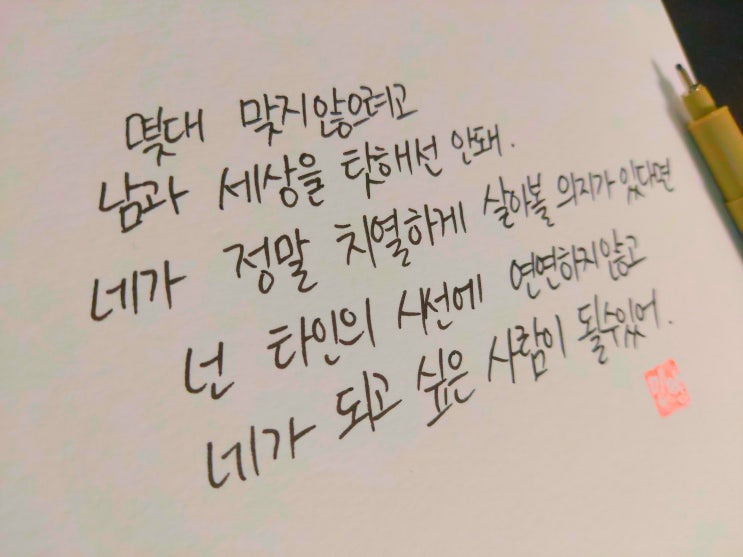 몇대 맞지않으려고
남과 세상을 탓해선 안돼.
네가 정말 치열하게 살아볼 의지가 있다면
넌 타인의 시선에 연연하지않고
네가 되고 싶은 사람이 될수있어.